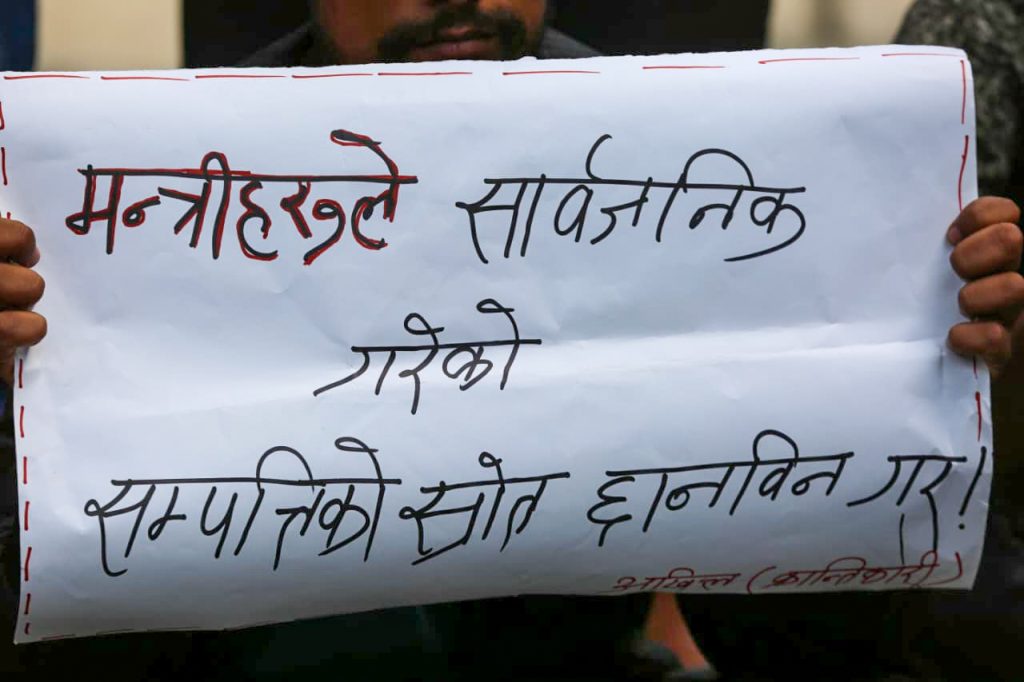 मन्त्रीहरुले सार्वजनिक
गरेको
सम्पत्तिको स्रोत छानविन गर!
अखिल (क्रान्तिकारी)